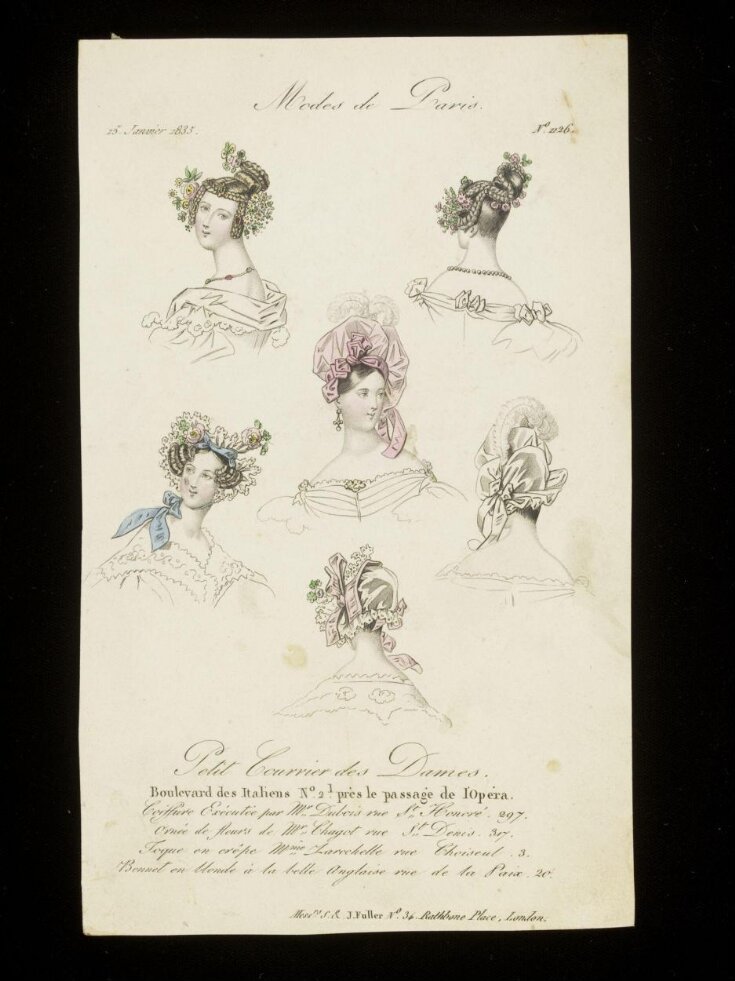 Modes de Paris.
15 Janvier 1835. Nº 1126.
Petit Courrier des Dames.
Boulevard des Italiens Nº 2 1 près le passage de l'Opéra.
Coiffure Exécutée par Mr. Dubois rue St. Honoré. 297.
Ornée de fleurs de Mr. Chagot rue St. Denis. 317.
Toque en crêpe Mme Larochelle rue Choiseul. 3.
Bonnet en blonde à la belle Anglaise rue de la Paix. 20.
Messrs S. & J. Fuller Nº 34. Rathbone Place, London.